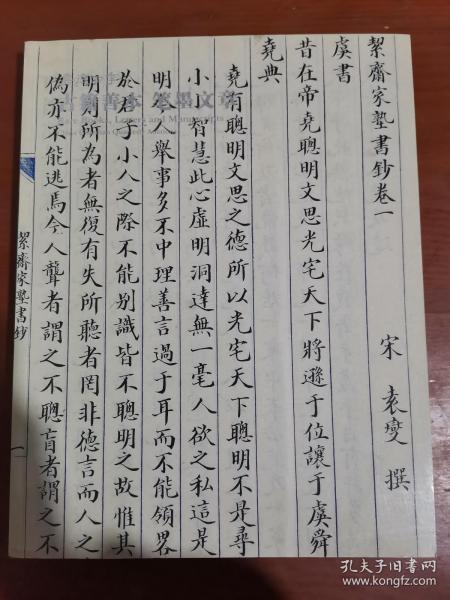 絜齋家塾書鈔卷一
宋 袁燮 撰
虞書
昔在帝堯聰明文思光宅天下將遜于位讓于虞舜
堯典
堯有聰明文思之德所以光宅天下聰明不是尋
小小智慧此心虛明洞達無一毫人欲之私這是
明人舉事多不中理善言過于耳而不能領畧
於君子小人之際不能别識皆不聰明之故惟其
明則所為者無復有失所聽者罔非德言而人之
偽亦不能逃焉今人聾者謂之不聰盲者謂之不
絜齋家塾書鈔
一
古籍善本 筆墨文章
Letters and Manuscripts
孔夫子旧书网
book.kongfz.com